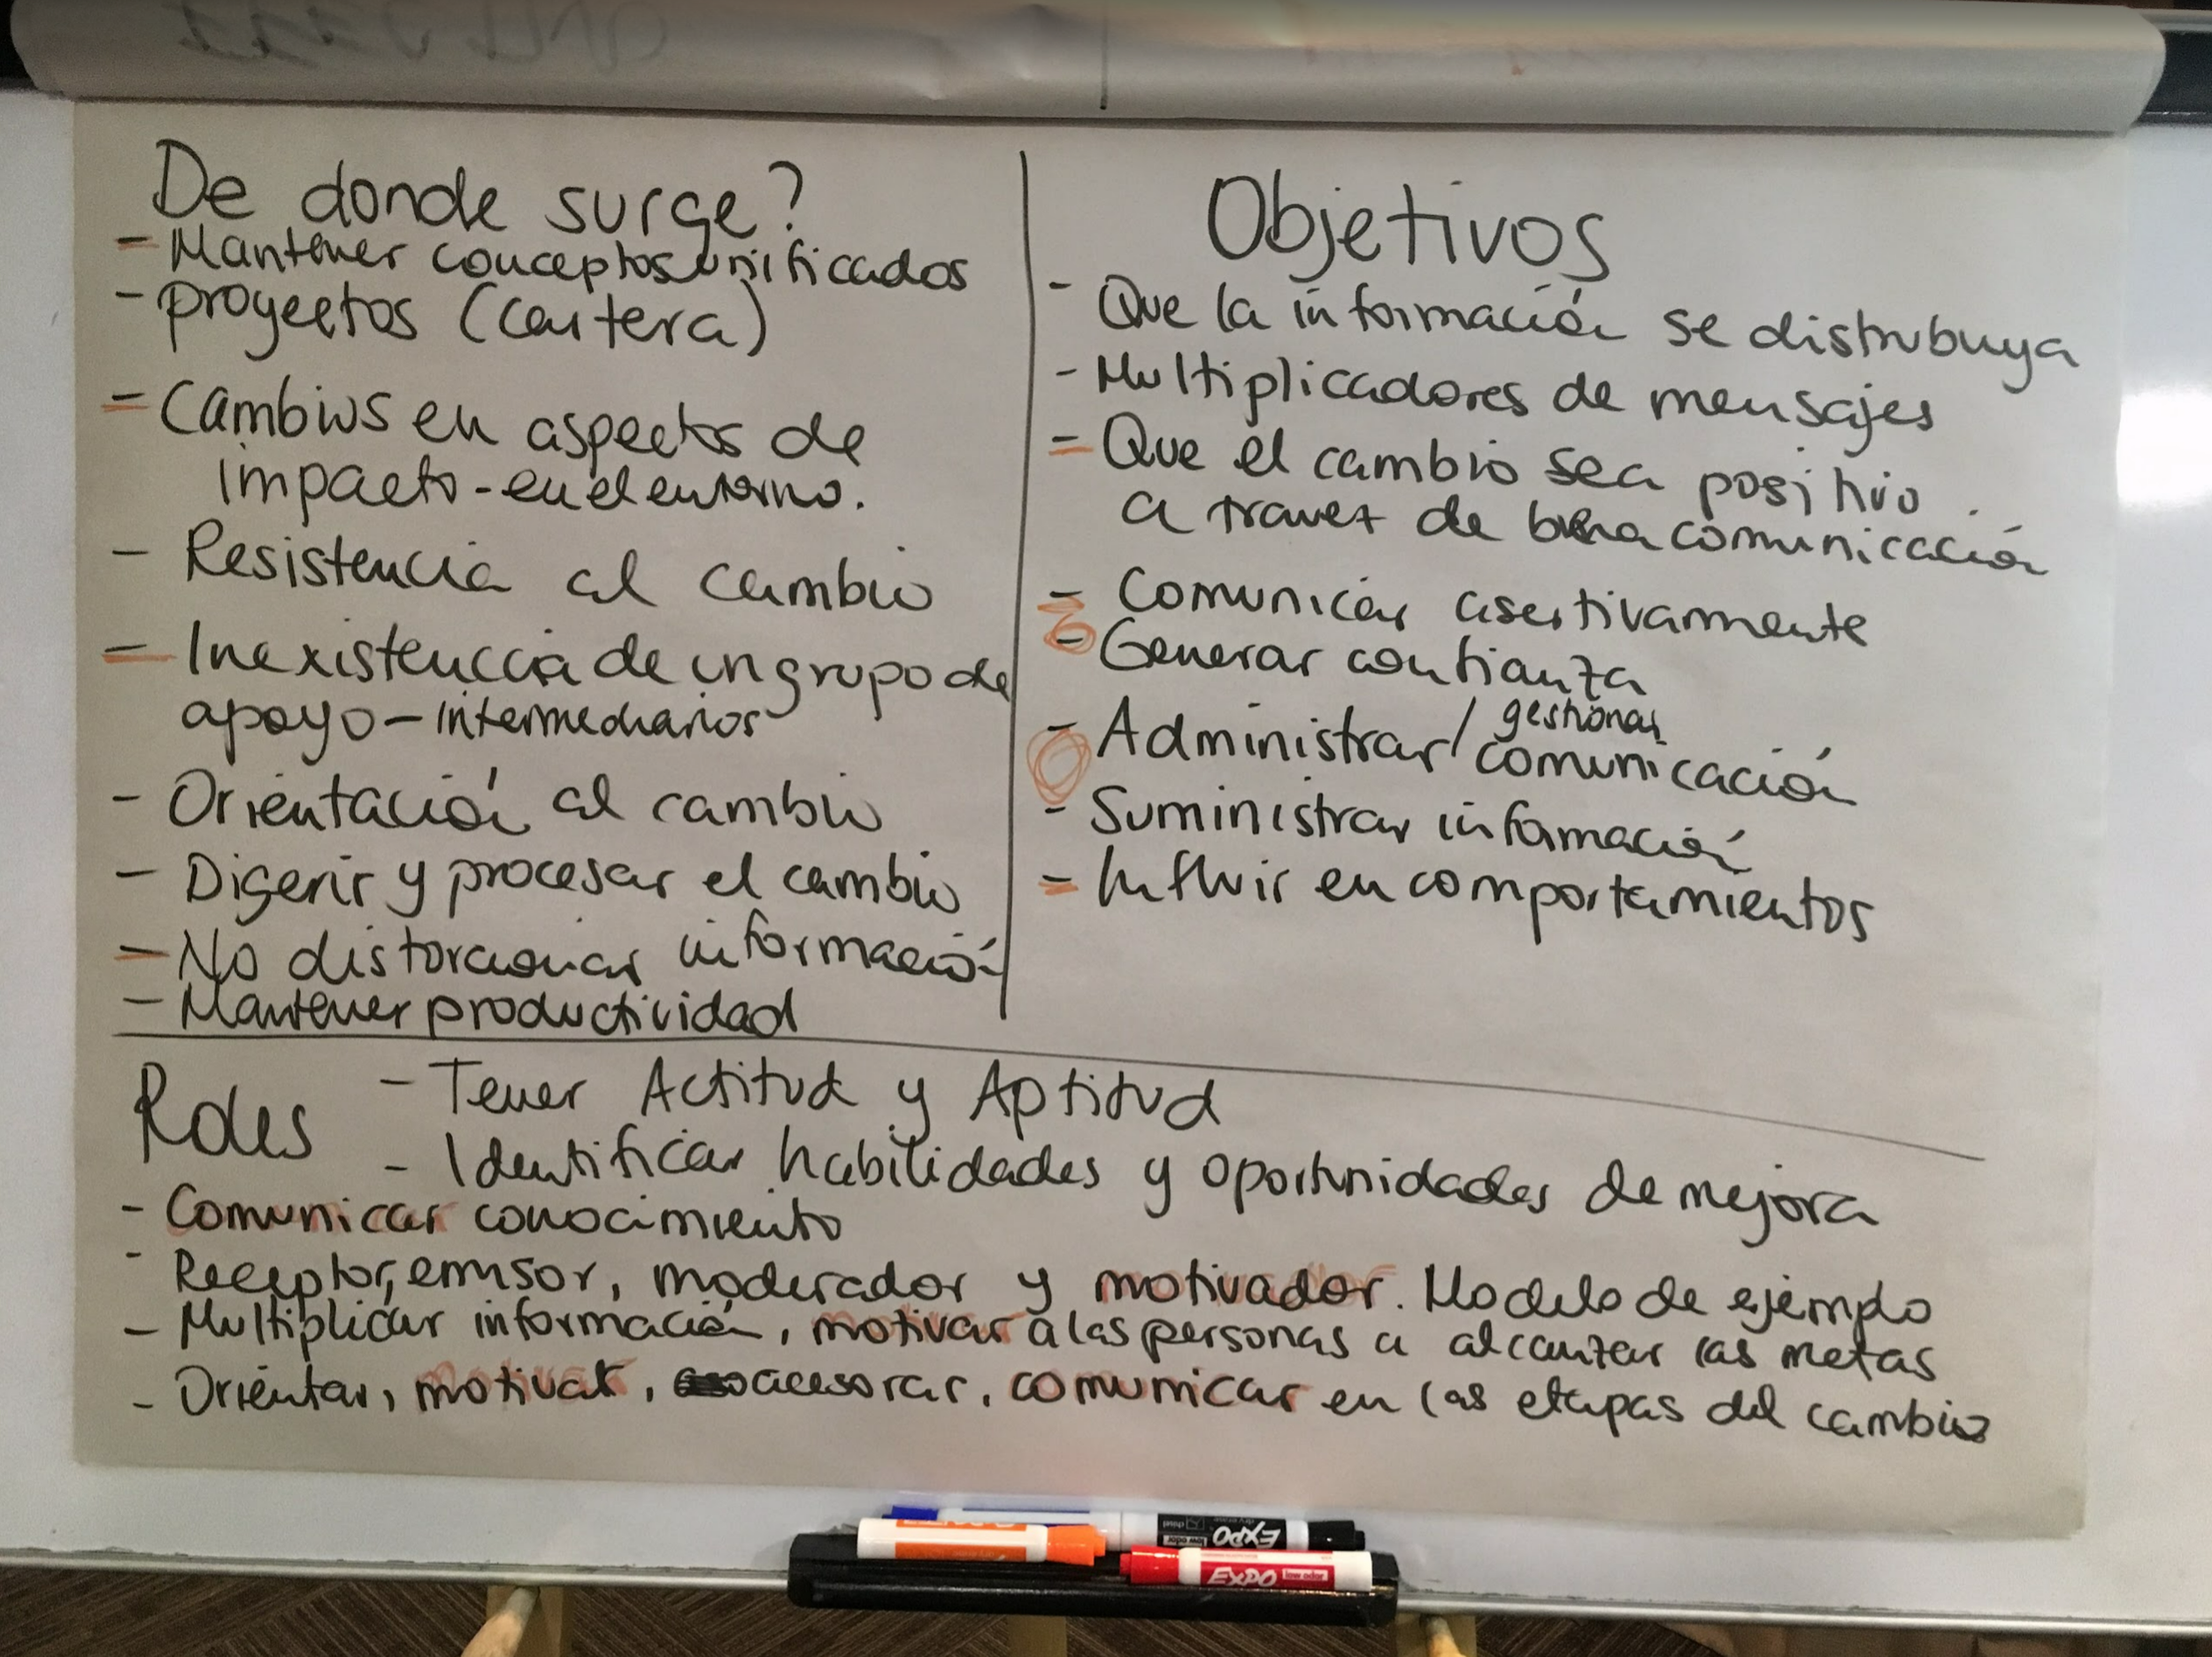 De donde surge?
- Mantener conceptos unificados
- proyectos (cartera)
- Cambios en aspectos de
impacto - en el entorno.
- Resistencia al cambio
- Inexistenccia de un grupo de
apoyo - intermediarios
- Orientación al cambio
- Digerir y procesar el cambio
- No distorcionar información
- Mantener productividad
Objetivos
- Que la información se distrubuya
- Multiplicadores de mensajes
- Que el cambio sea positivo
a travez de buena comunicación
- Comunicar asertivamente
- Generar confianza
- Administrar/gestionar
comunicación
- Suministrar información
- Influir en comportamientos
Roles
- Tener Actitud y Aptitud
- Identificar habilidades y oportunidades de mejora
- Comunicar conocimiento
- Receptor, emisor, moderador y motivador. Modelo de ejemplo
- Multiplicar información, motivar a las personas a alcanzar las metas
- Orientar, motivar, acesorar, comunicar en las etapas del cambio
EXPO
EXPO low odor